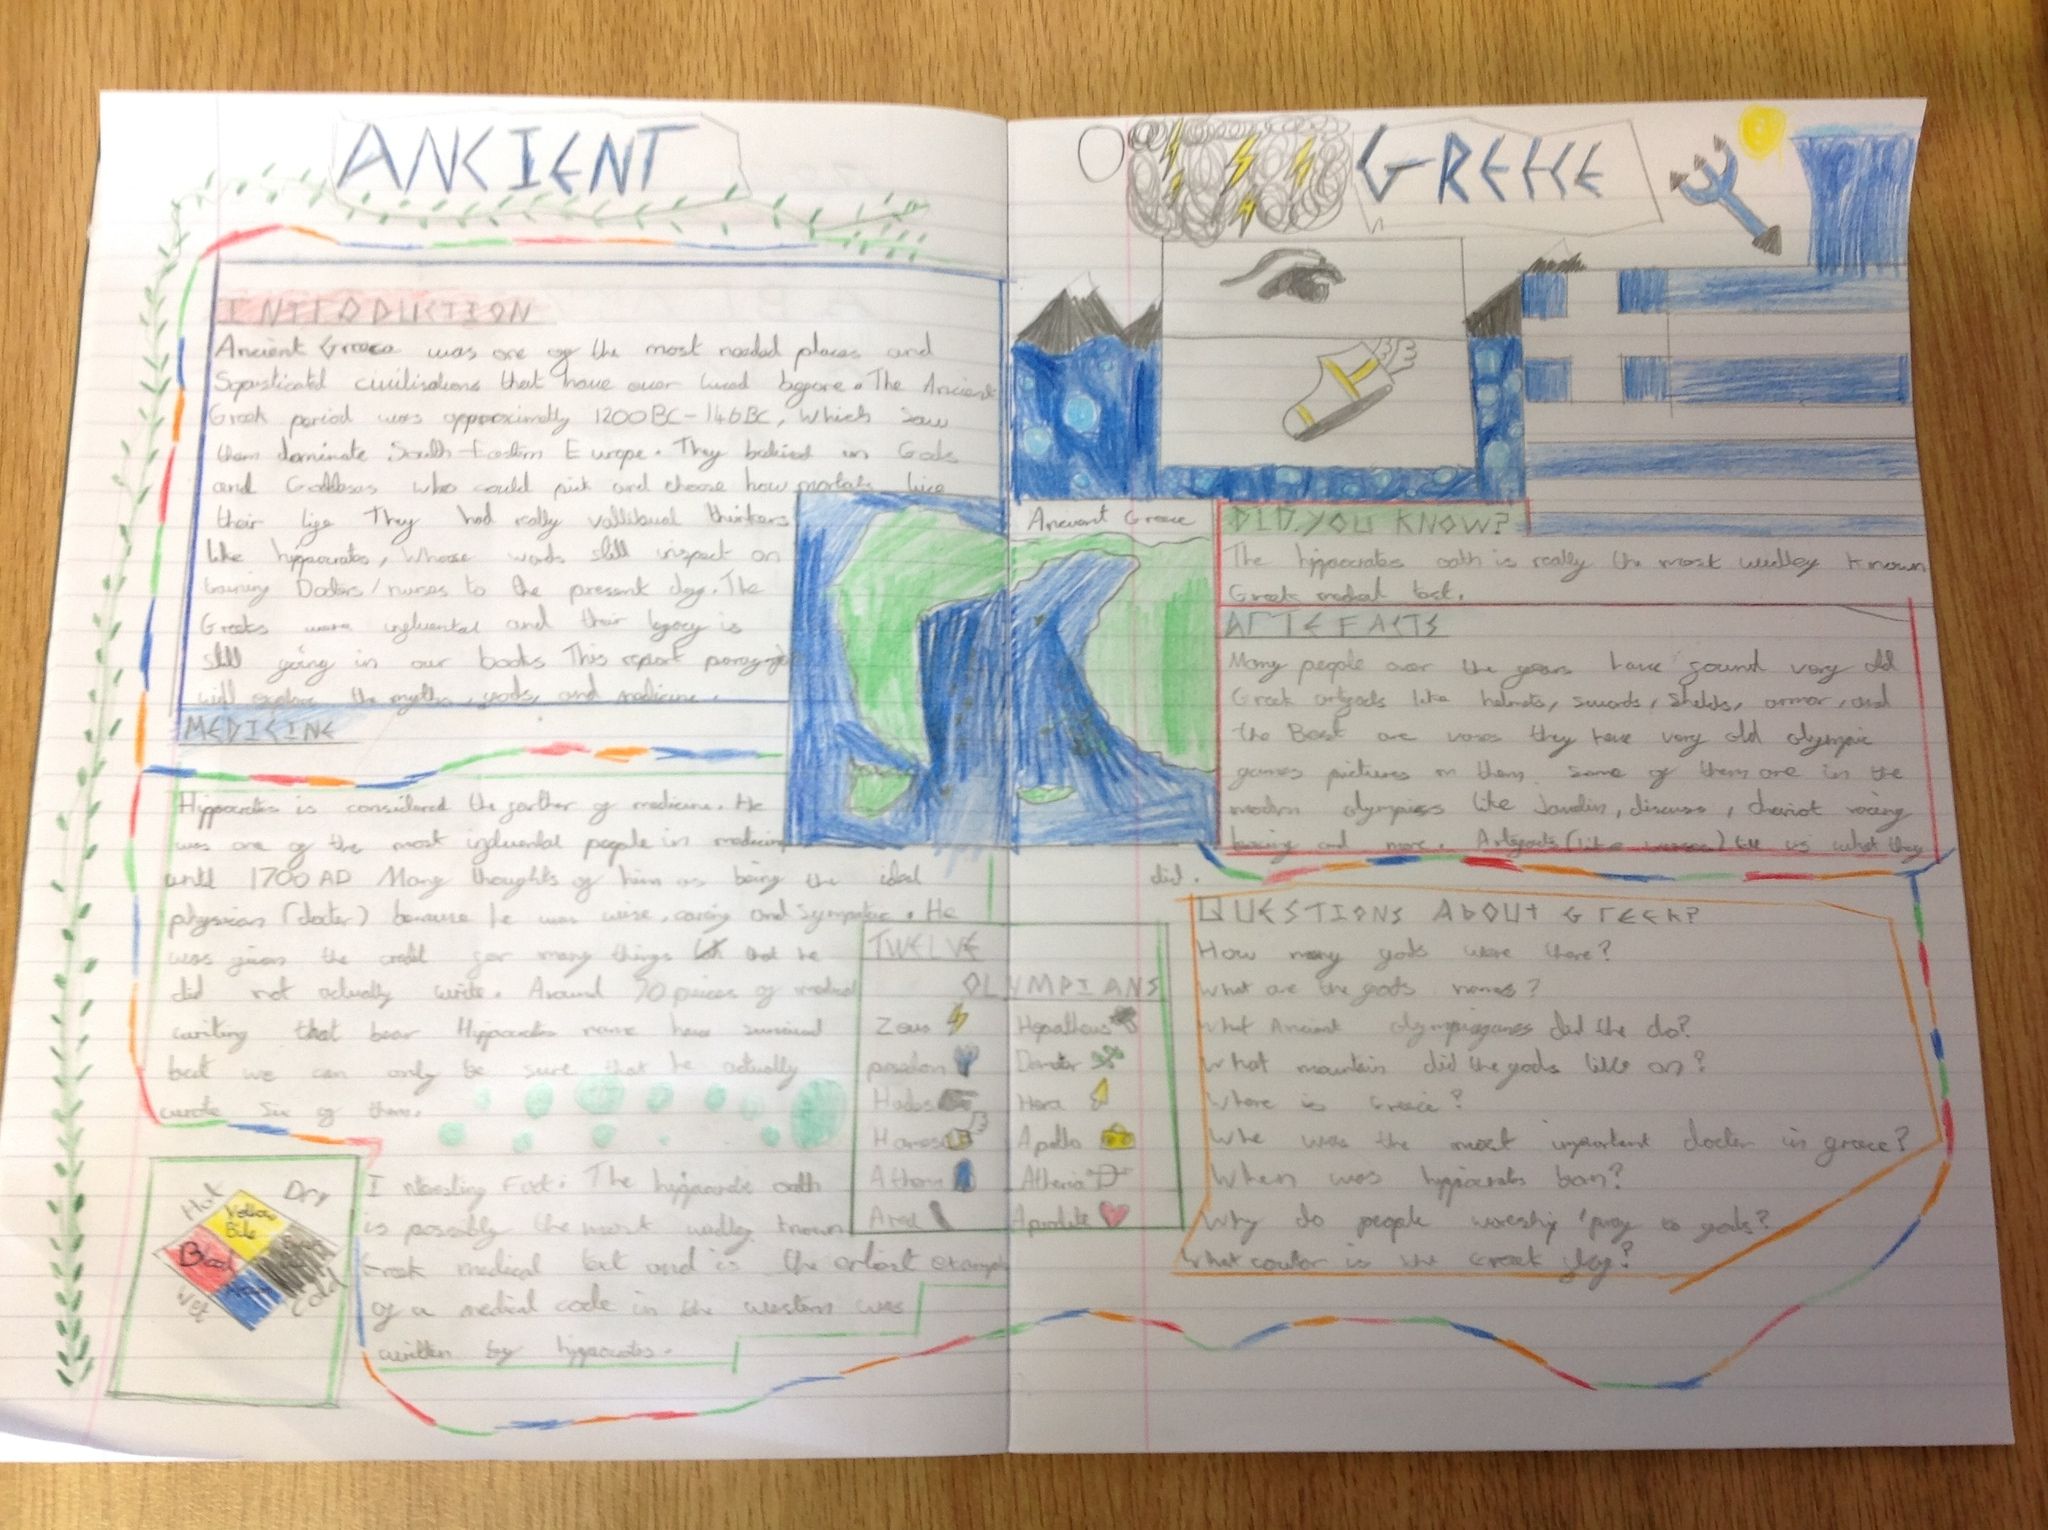 ANCIENT
GREECE
INTRODUCTION
Ancient Greece was one of the most needed places and
Sopisticated civilisations that have ever lived before. The Ancient
Greek period was approximatly 1200BC-146BC, Which saw
them dominate South-Eastern Europe. They belived in Gods
and Goddeses who could pick and choose how mortals live
their life They had really thinkers
like hippocrates, Whose words still inspect on
training Doctors/nurses to the present day. The
Greeks were influental and their legacy is
still going in our books This report paragraph
will explore the myths, gods, and medicine.
MEDICINE
Hippocrates is considered the farther of medicine. He
was one of the most influental people in medicine
until 1700 AD Many thoughts of him as being the ideal
physician (docter) because he was wise, caring and . He
was given the credit for many things that he
did not actually write. Around 70 pieces of medical
writing that bear Hippocrates name have survived
but we can only be sure that he actually
wrote six of them.
Hot
Dry
Yellow
Bile
Wet
Cold
Interesting Fact: The hippocratic oath
is possibly the most widley known
Greek medical text and is the erliest example
of a medical code in the western was
written by hippocrates.
Ancient Greece
TWELVE
OLYMPIANS
Zeus
poseidon
Hades
Athena
Hera
Apollo
DID YOU KNOW?
The hippocrates oath is really the most widley known
Greek medical text.
ARTEFACTS
Many people over the years have found very old
Greek like helmets, swords, shelds, armor, and
the Best are vases they have very old olympic
games pictures on them. some of them are in the
modern olympics like , discuss, chariot racing
boxing and more. Artefacts (like ) tell us what they
did.
QUESTIONS ABOUT GREEK?
How many gods were there?
What are the gods names?
What Ancient olympicgames did the do?
What mountain did the gods on?
Where is Greece?
Who was the most important docter in grece?
When was hippocrates born?
Why do people worship/pray to gods?
What coulor is the Greek flag?